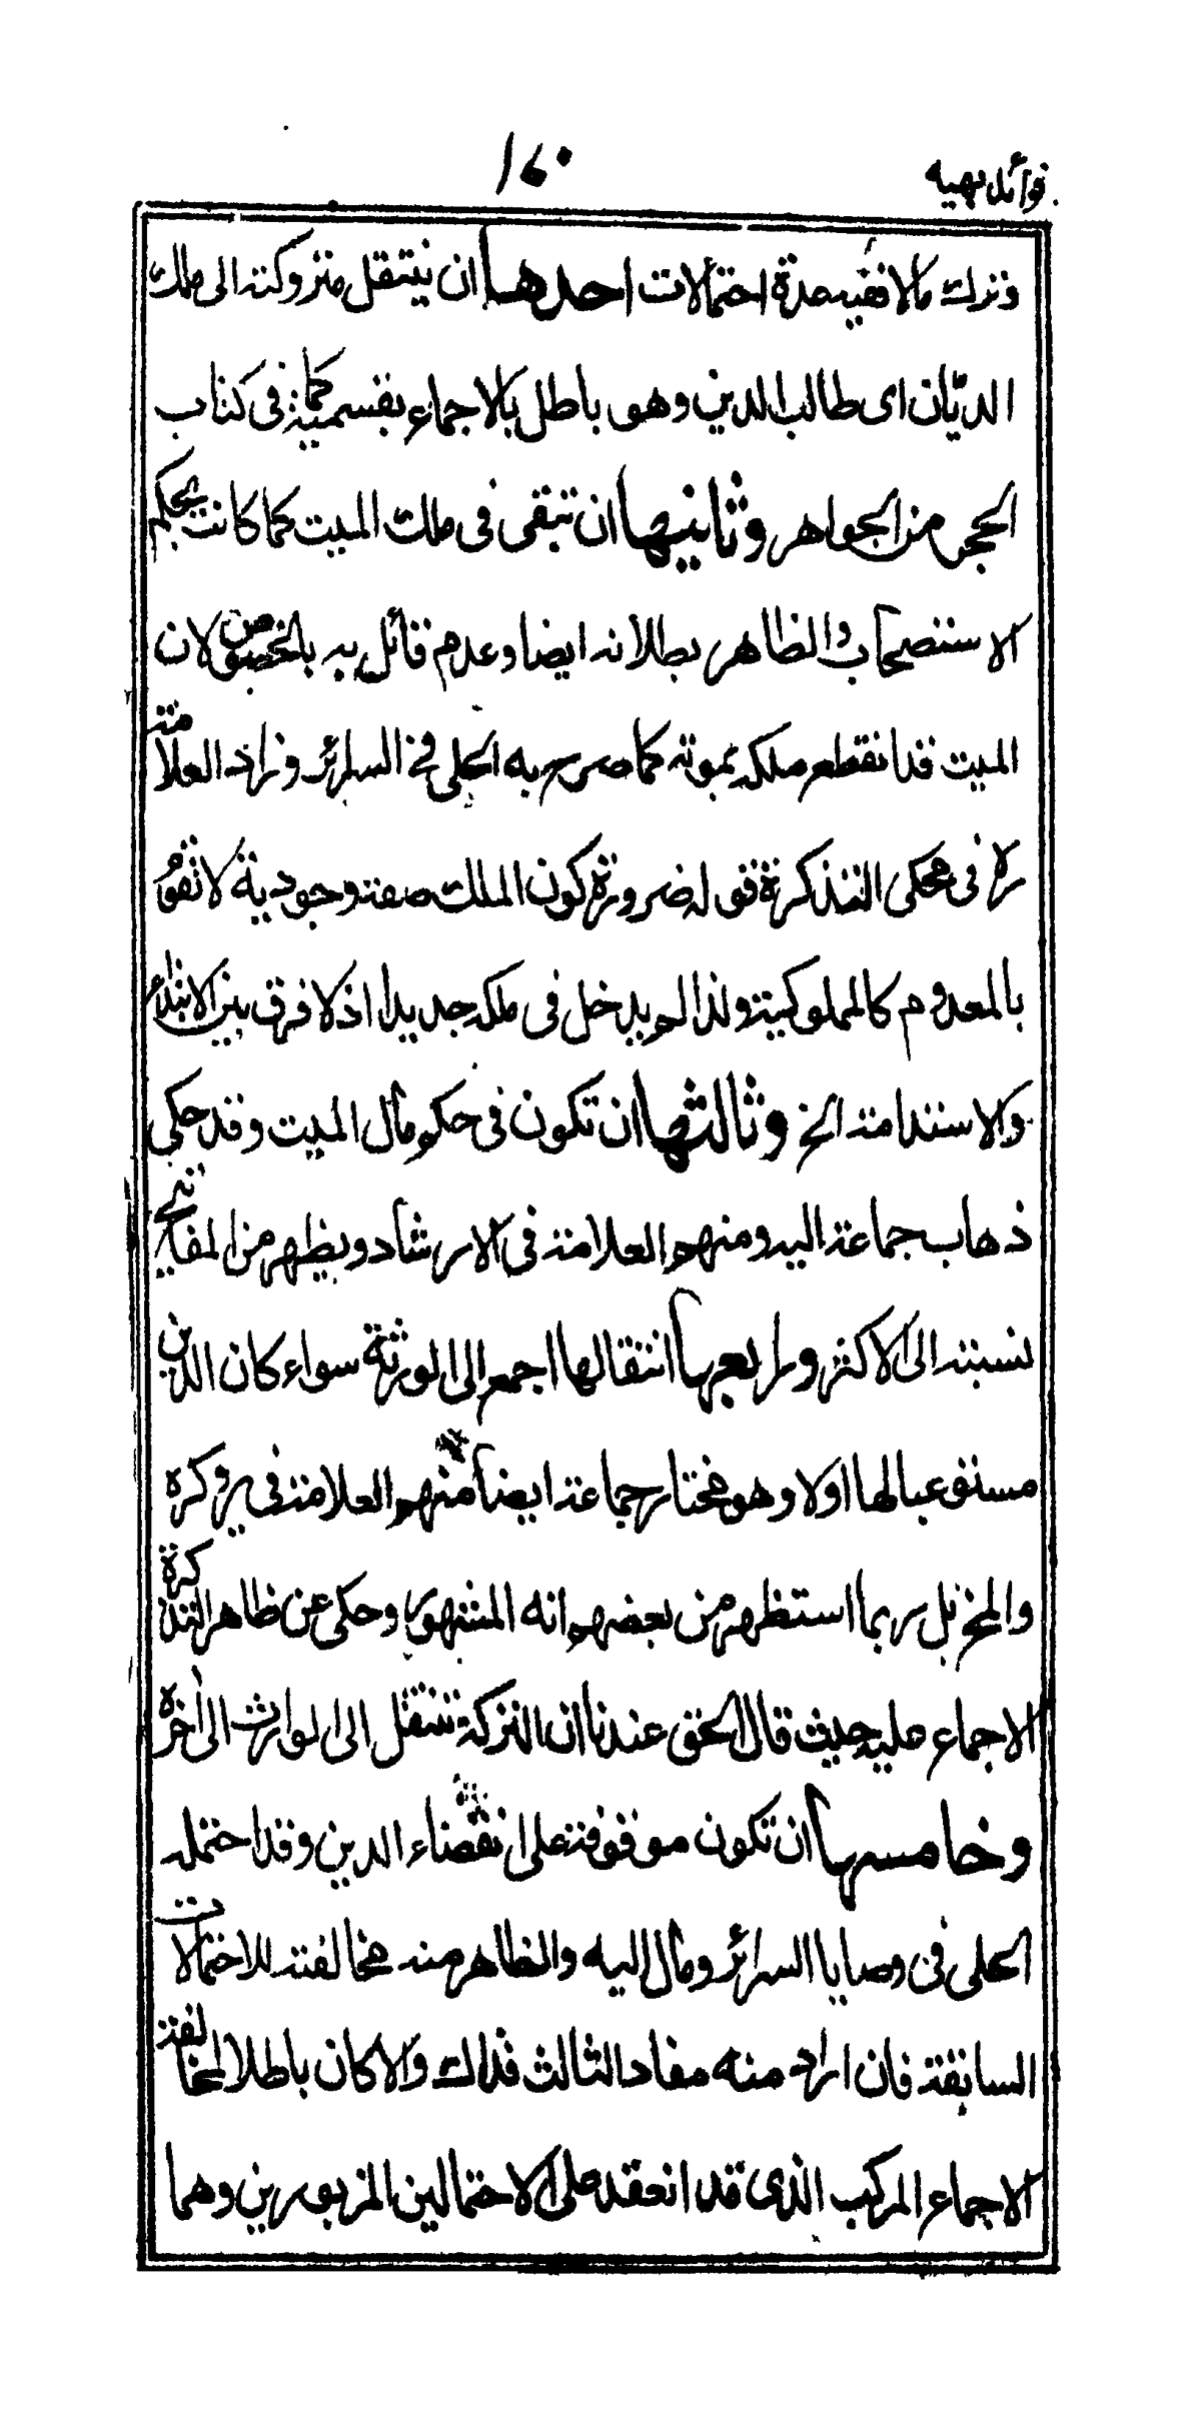 فوائد بهيه
١٦٠
وترك مالا ففيه عدة احتمالات احدها ان ينتقل متروكته الى ملك
الديّان اى طالب الدين وهو باطل بالاجماع بقسميه كما في كتاب
الحجر من الجواهر وثانيها ان تبقى فى ملك الميت كما كانت بحكم
الاستصحاب والظاهر بطلانه ايضا وعدم قائل به بالخصوص لان
الميت قد انقطع ملكه بموته كما صرح به الحلى في السرائر وزاد العلامة
ره فى محكى التذكرة قوله ضرورة كون الملك صفة وجودية لا تقوم
بالمعدوم كالمملوكية ولذا لم يدخل فى ملكه جديدا اذ لا فرق بين الابتداء
والاستدامة الخ وثالثها ان تكون فى حكم مال الميت وقد حكى
ذهاب جماعة اليه ومنهم العلامة فى الارشاد ويظهر من المفاتيح
نسبته الى الاكثر ورابعها انتقالها اجمع الى الورثة سواء كان الدين
مستوعبا لها اولا وهو مختار جماعة ايضا منهم العلامة في
والمخ بل ربما استظهر من بعضهم انه المشهور وحكى عن ظاهر التذكرة
الاجماع عليه حيث قال الحق عندنا ان التركة تنتقل الى الوارث الى اخره
وخامسها ان تكون موقوفة على انقضاء الدين وقد احتمله
الحلى في وصايا السرائر ومال اليه والظاهر منه مخالفته للاحتمالات
السابقة فان اراد منه مفاد الثالث فذاك والا كان باطلا لمخالفته
الاجماع المركب الذى قد انعقد على الاحتمالين المزبورين وهما